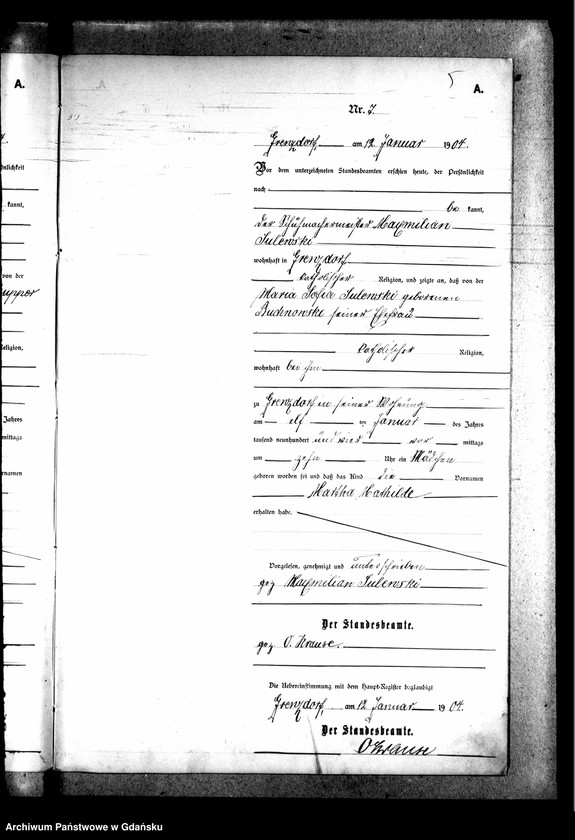 A.
5
A.
Nr. 7.
Grenzdorf, am 12 Januar 1904.
Vor dem unterzeichneten Standesbeamten erschien heute, der Persönlichkeit
nach
be kannt,
der Schuhmachermeister Maxmilian
Sulewski
wohnhaft in Grenzdorf
katholischer Religion, und zeigte an, daß von der
Maria Sofia Sulewski geborenen
Buchnowski seiner Ehefrau
katholischer Religion,
wohnhaft bei ihm
zu Grenzdorf in seiner Wohnung
am elf ten Januar des Jahres
tausend neunhundert und vier vor mittags
um zehn Uhr ein Mädchen
geboren worden sei und daß das Kind die Vornamen
Martha Mathilde
erhalten habe.
Vorgelesen, genehmigt und unterschrieben
gez Maxmilian Sulewski
Der Standesbeamte.
gez O. Krause.
Die Uebereinstimmung mit dem Haupt-Register beglaubigt
Grenzdorf, am 12 Januar 1904.
Der Standesbeamte.
O Krause
kannt,
von der
Religion,
Jahres
mittags
Archiwum Państwowe w Gdańsku